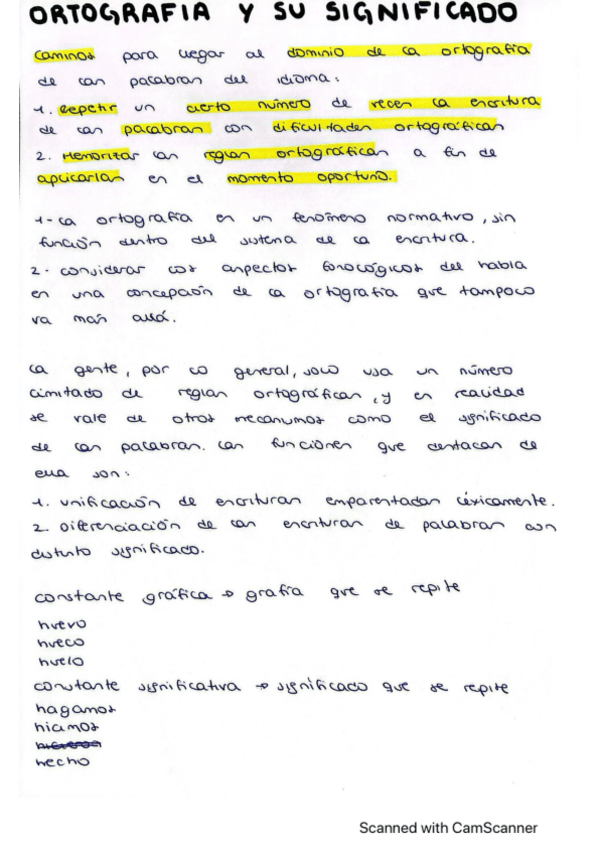 ORTOGRAFIA Y SU SIGNIFICADO
Caminos para llegar al dominio de la ortografía
de las palabras del idioma:
1. Repetir un cierto número de veces la escritura
de las palabras con dificultades ortográficas
2. Memorizar las reglas ortográficas a fin de
aplicarlas en el momento oportuno.
1- La ortografía es un fenómeno normativo, sin
función dentro del sistema de la escritura.
2- considerar los aspectos fonológicos del habla
es una concepción de la ortografía que tampoco
va más allá.
La gente, por lo general, solo usa un número
limitado de reglas ortográficas, y en realidad
se vale de otros mecanismos como el significado
de las palabras. Las funciones que destacan de
ella son:
1. Unificación de escrituras emparentadas léxicamente.
2. Diferenciación de las escrituras de palabras con
distinto significado.
constante gráfica → grafía que se repite
huevo
hueco
huelo
constante significativa → significado que se repite
hagamos
hicimos
hecho
Scanned with CamScanner